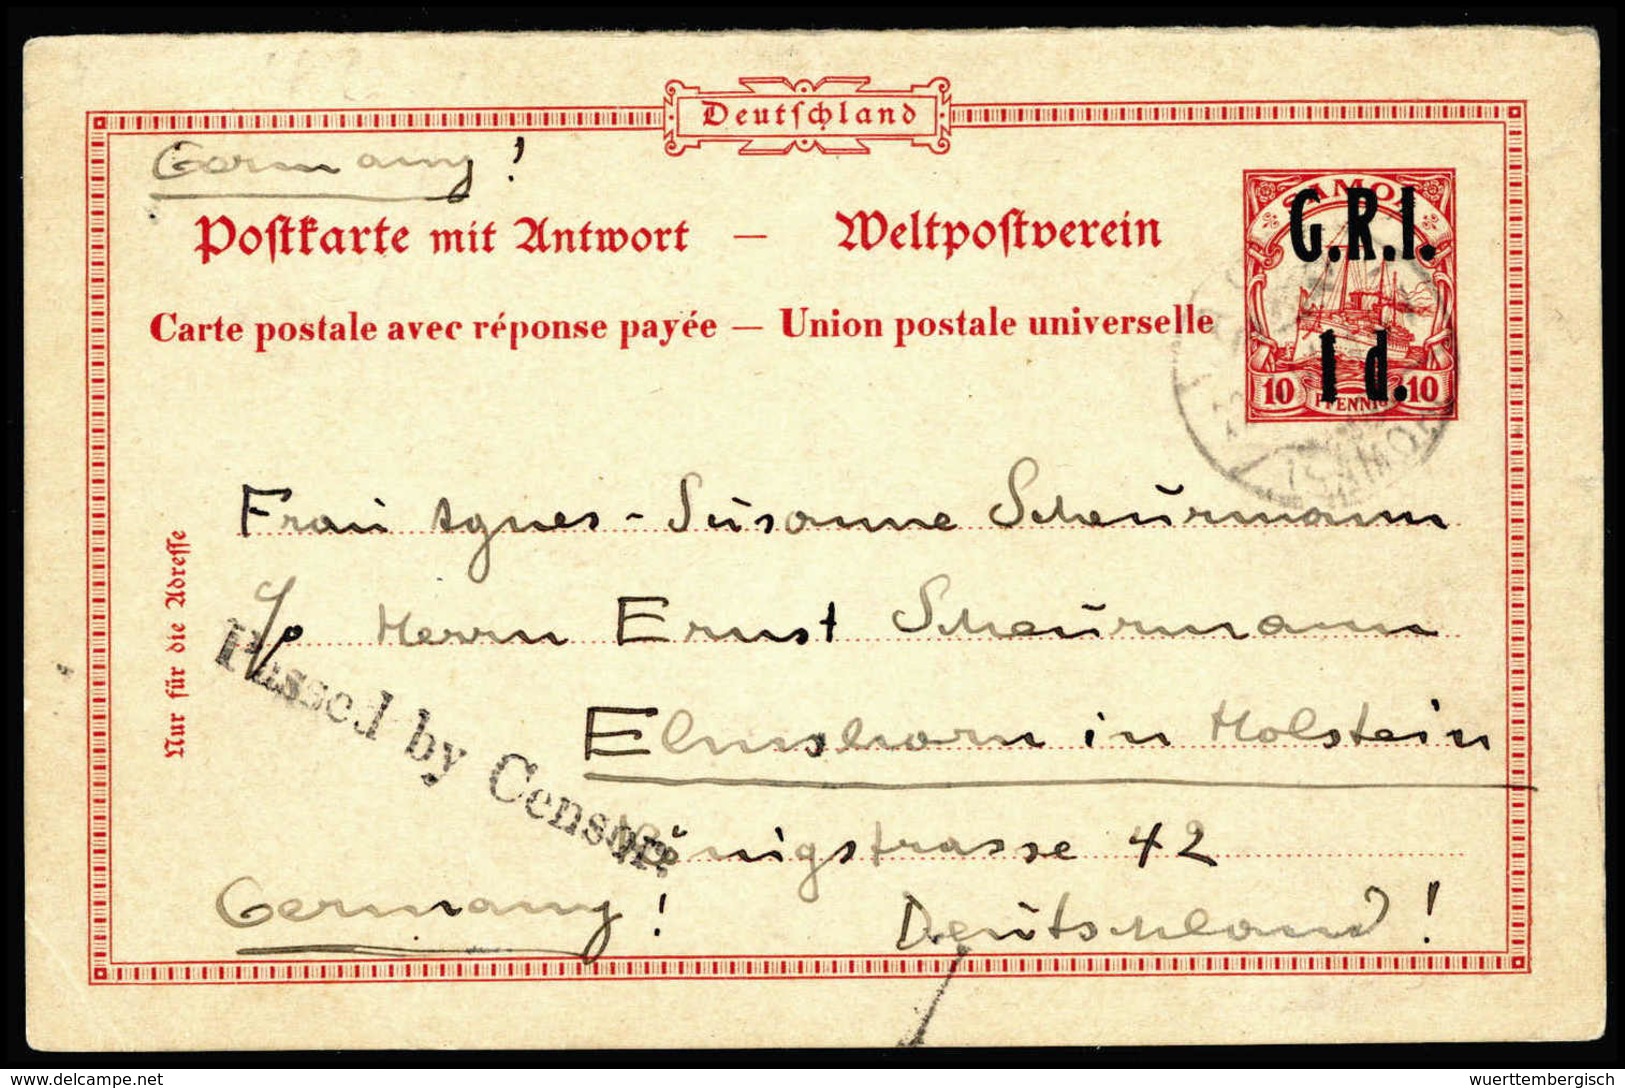 Deutschland
Germany!
Postkarte mit Antwort — Weltpostverein
Carte postale avec réponse payée — Union postale universelle
SAMOA
G.R.I.
1 d.
10 PFENNIG 10
Frau Agnes-Susanne Scheurmann
c/o Herrn Ernst Scheurmann
Elmshorn in Holstein
Königstrasse 42
Germany! Deutschland!
Nur für die Adresse
Passed by Censor.
(SAMOA)
DELCAMPE.NET
wuerttembergisch